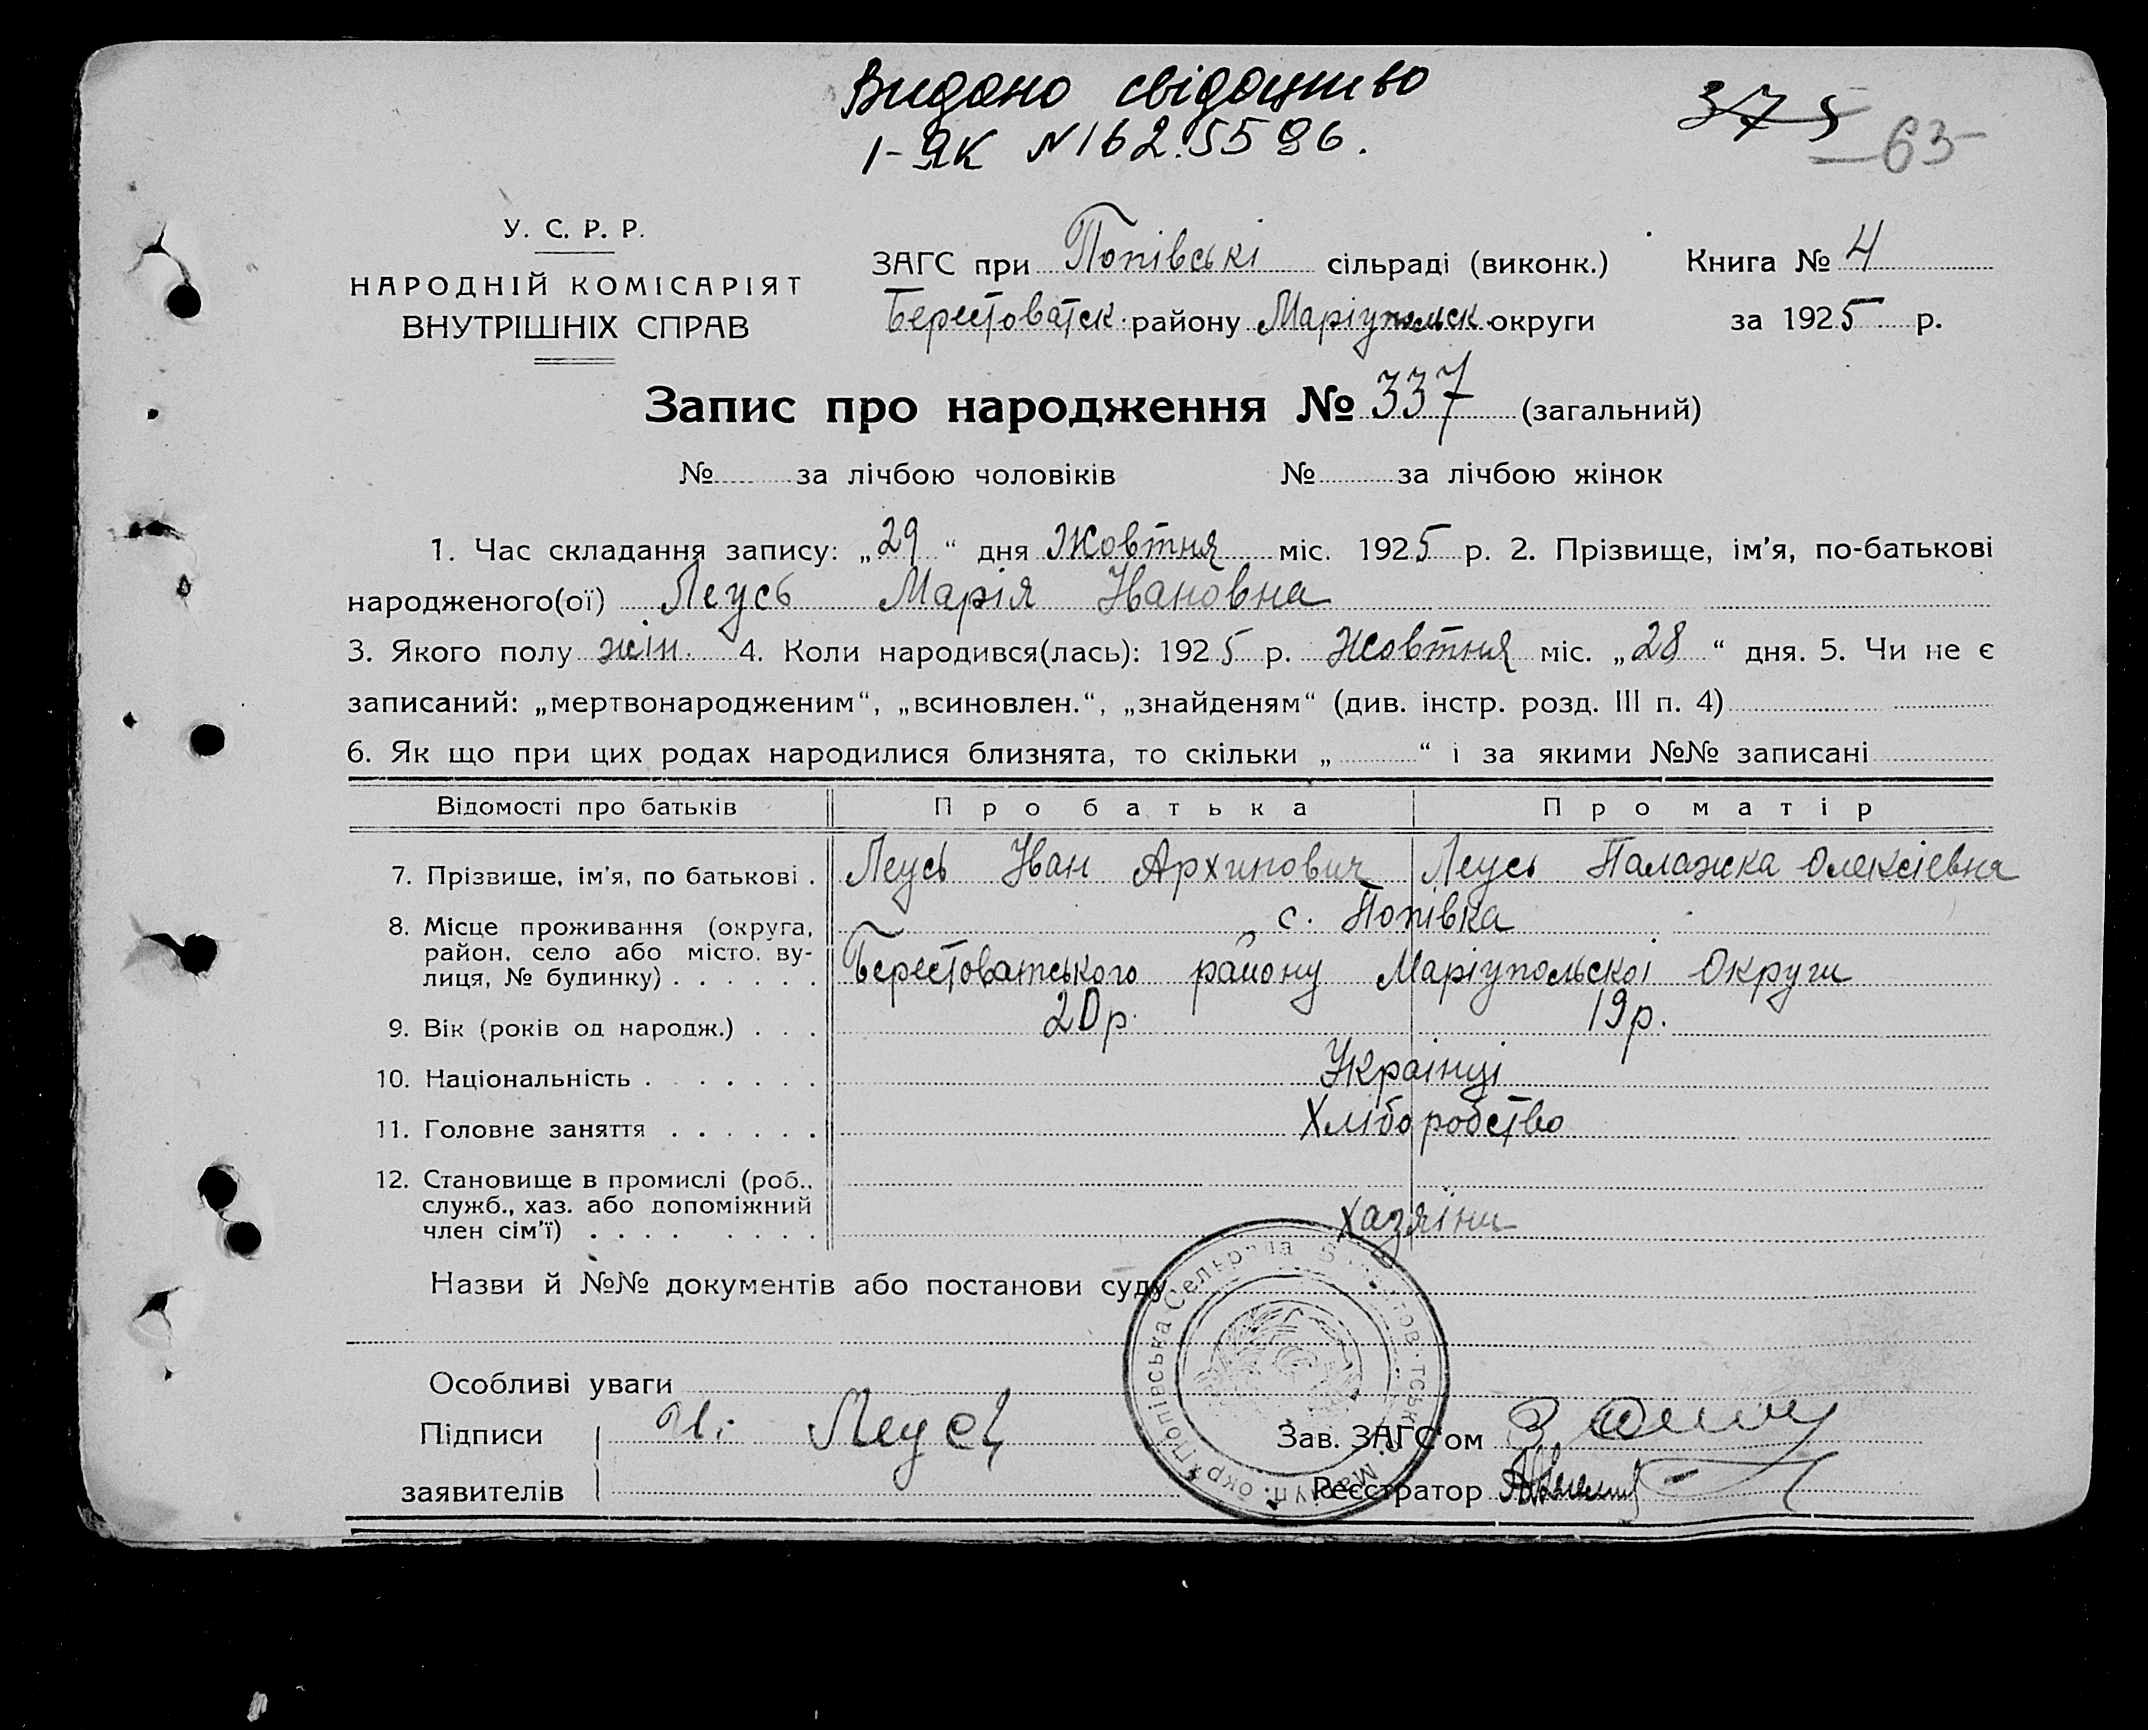 Видано свідоцтво
375
I-ЯК №162.5596.
63
У. С. Р. Р.
НАРОДНІЙ КОМІСАРІЯТ
ВНУТРІШНІХ СПРАВ
ЗАГС при Попівські сільраді (виконк.) Книга № 4
Берестоватск. району Маріупольск. округи за 1925 р.
Запис про народження № 337 (загальний)
№ за лічбою чоловіків № за лічбою жінок
1. Час складання запису: „29“ дня Жовтня міс. 1925 р. 2. Прізвище, ім'я, по-батькові
народженого(ої) Леусь Марія Івановна
3. Якого полу жін. 4. Коли народився(лась): 1925 р. Жовтня міс. „28“ дня. 5. Чи не є
записаний: „мертвонародженим“, „всиновлен.“, „знайденям“ (див. інстр. розд. III п. 4)
6. Як що при цих родах народилися близнята, то скільки „ “ і за якими №№ записані
Відомості про батьків Про батька Про матір
7. Прізвище, ім'я, по батькові . Леусь Іван Архипович Леусь Палажка Олексіевна
8. Місце проживання (округа, с. Попівка
район, село або місто, ву-
лиця, № будинку) . . . . . . Берестоватського району Маріупольскоі Округи
9. Вік (років од народж.) . . . 20 р. 19 р.
10. Національність . . . . . . . Украінці
11. Головне заняття . . . . . . Хліборобство
12. Становище в промислі (роб.,
служб., хаз. або допоміжний
член сім'ї) . . . . . . . . Хазяіни
Назви й №№ документів або постанови суду
Особливі уваги
Підписи И. Леусь Зав. ЗАГС'ом
заявителів Реєстратор
Попівська Сельрада